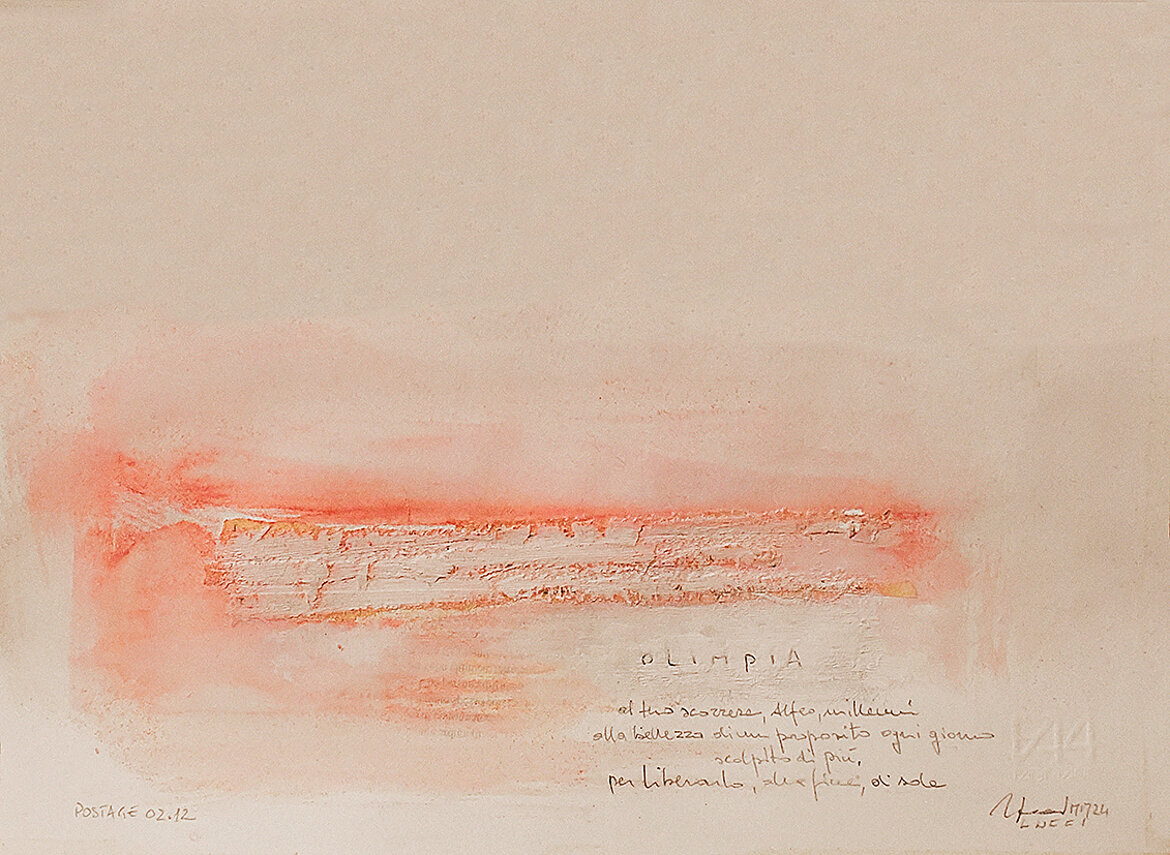 OLIMPIA
al tuo scorrere, Alfeo, millenni
alla bellezza di un proposito ogni giorno
scolpito di più,
per liberarlo, alla fine, di sole
POSTAGE 02.12